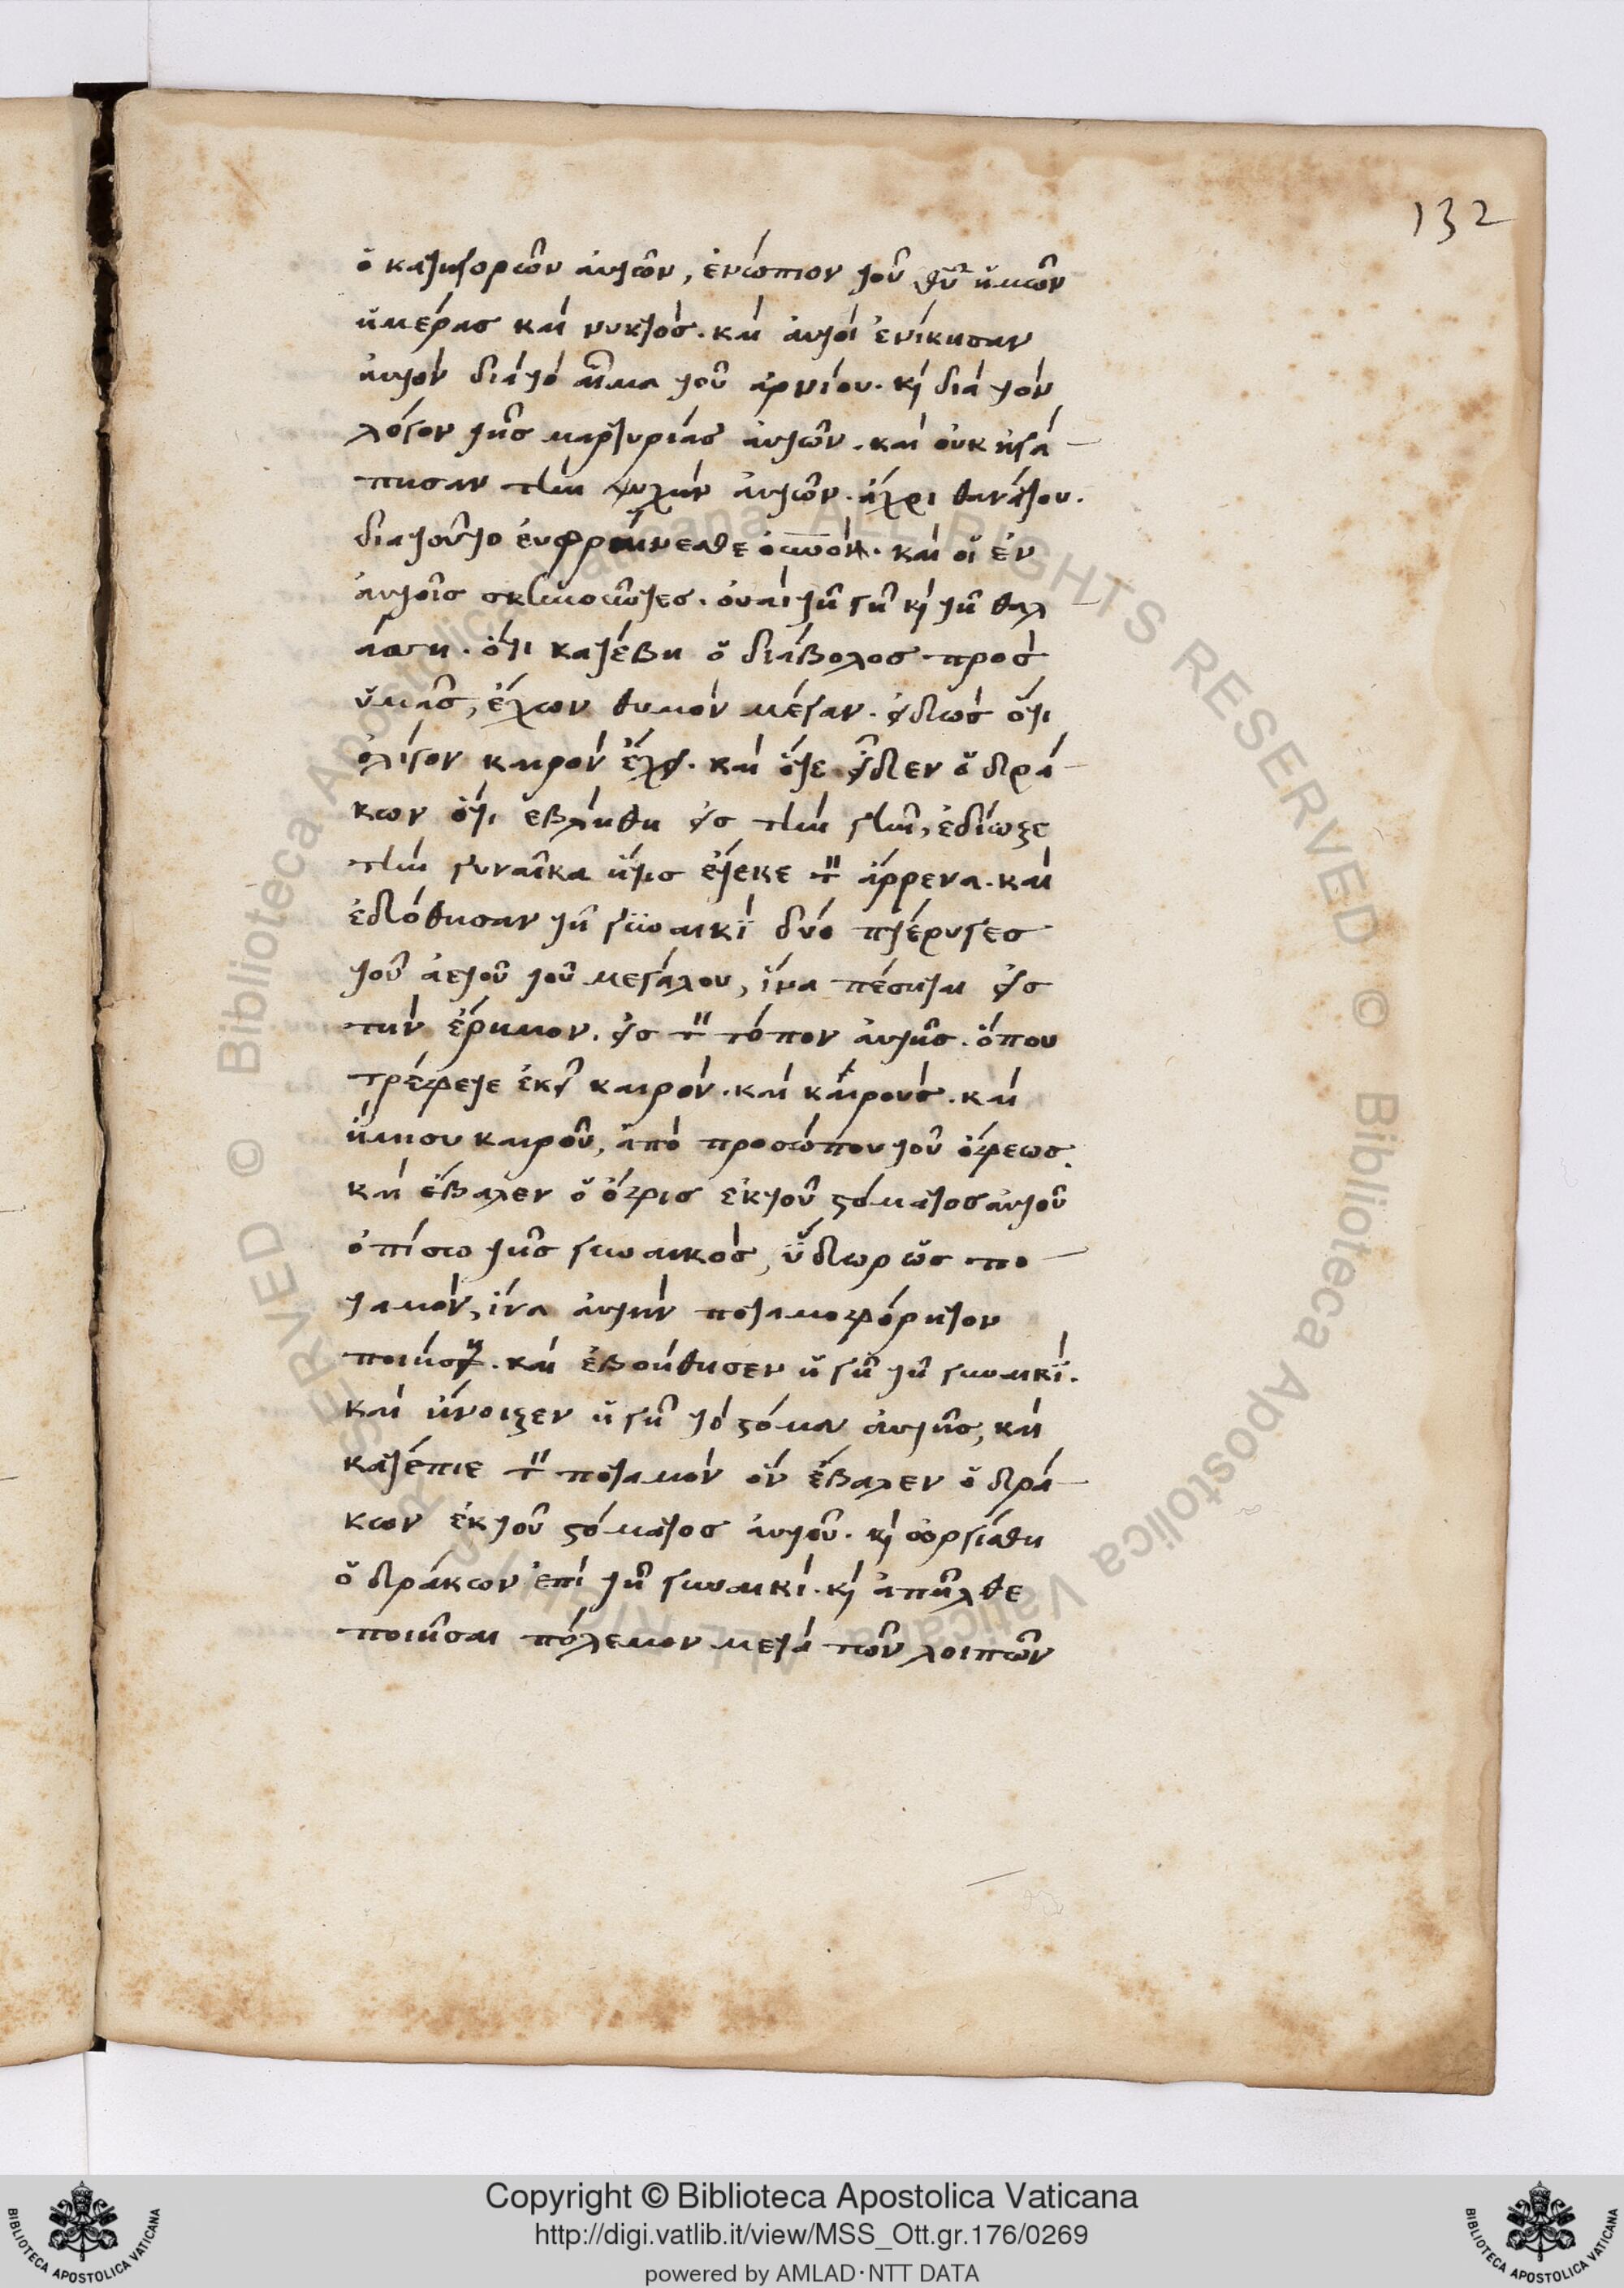 132
ὁ κατηγορῶν αὐτῶν, ἐνώπιον τοῦ θυ̅ ἡμῶν
ἡμέρας καὶ νυκτός. καὶ αὐτοὶ ἐνίκησαν
αὐτὸν διὰ τὸ αἷμα τοῦ ἀρνίου. κὶ διὰ τὸν
λόγον τῆς μαρτυρίας αὐτῶν. καὶ οὐκ ἠγά
πησαν τὴν ψυχὴν αὐτῶν. ἄχρι θανάτου.
διατοῦτο εὐφραίνεσθε οὐνοὶ. καὶ οἱ ἐν
αὐτοῖς σκηνοῦντες. οὐαὶ τῆ γῆ κὶ τῆ θαλ
άσση. ὅτι κατέβη ὁ διάβολος πρὸς
ὑμᾶς, ἔχων θυμὸν μέγαν. εἰδὼς ὅτι
ὀλίγον καιρὸν ἔχει. καὶ ὅτε εἶδεν ὁ δρά
κων ὅτι ἐβλήθη εἰς τὴν γῆν, ἐδίωξε
τὴν γυναῖκα ἥτις ἔτεκε τ̀ ἄρρενα. καὶ
ἐδόθησαν τῆ γυναικὶ δύο πτέρυγες
τοῦ ἀετοῦ τοῦ μεγάλου, ἵνα πέσηται εἰς
τὴν ἔρημον. εἰς τ̀ τόπον αὐτῆς. ὅπου
τρέφετε ἐκεῖ καιρὸν. καὶ καιροὺς. καὶ
ἥμισυ καιροῦ, ἀπὸ προσώπου τοῦ ὄφεως.
καὶ ἔβαλεν ὁ ὄφις ἐκτοῦ στόματος αὐτοῦ
ὀπίσω τῆς γυναικὸς, ὕδωρ ὡς πο
ταμὸν, ἵνα αὐτὴν ποταμοφόρητον
ποιήσῃ. καὶ ἐβοήθησεν ἡ γῆ τῆ γυναικὶ.
καὶ ἤνοιξεν ἡ γῆ τὸ στόμα αὐτῆς, καὶ
κατέπιε τ̀ ποταμὸν ὃν ἔβαλεν ὁ δρά
κων ἐκτοῦ στόματος αὐτοῦ. κὶ ὀργίσθη
ὁ δράκων ἐπὶ τῆ γυναικὶ. κὶ ἀπῆλθε
ποιῆσαι πόλεμον μετὰ τῶν λοιπῶν
Copyright © Biblioteca Apostolica Vaticana
http://digi.vatlib.it/view/MSS_Ott.gr.176/0269
powered by AMLAD·NTT DATA
BIBLIOTECA APOSTOLICA VATICANA
BIBLIOTECA APOSTOLICA VATICANA